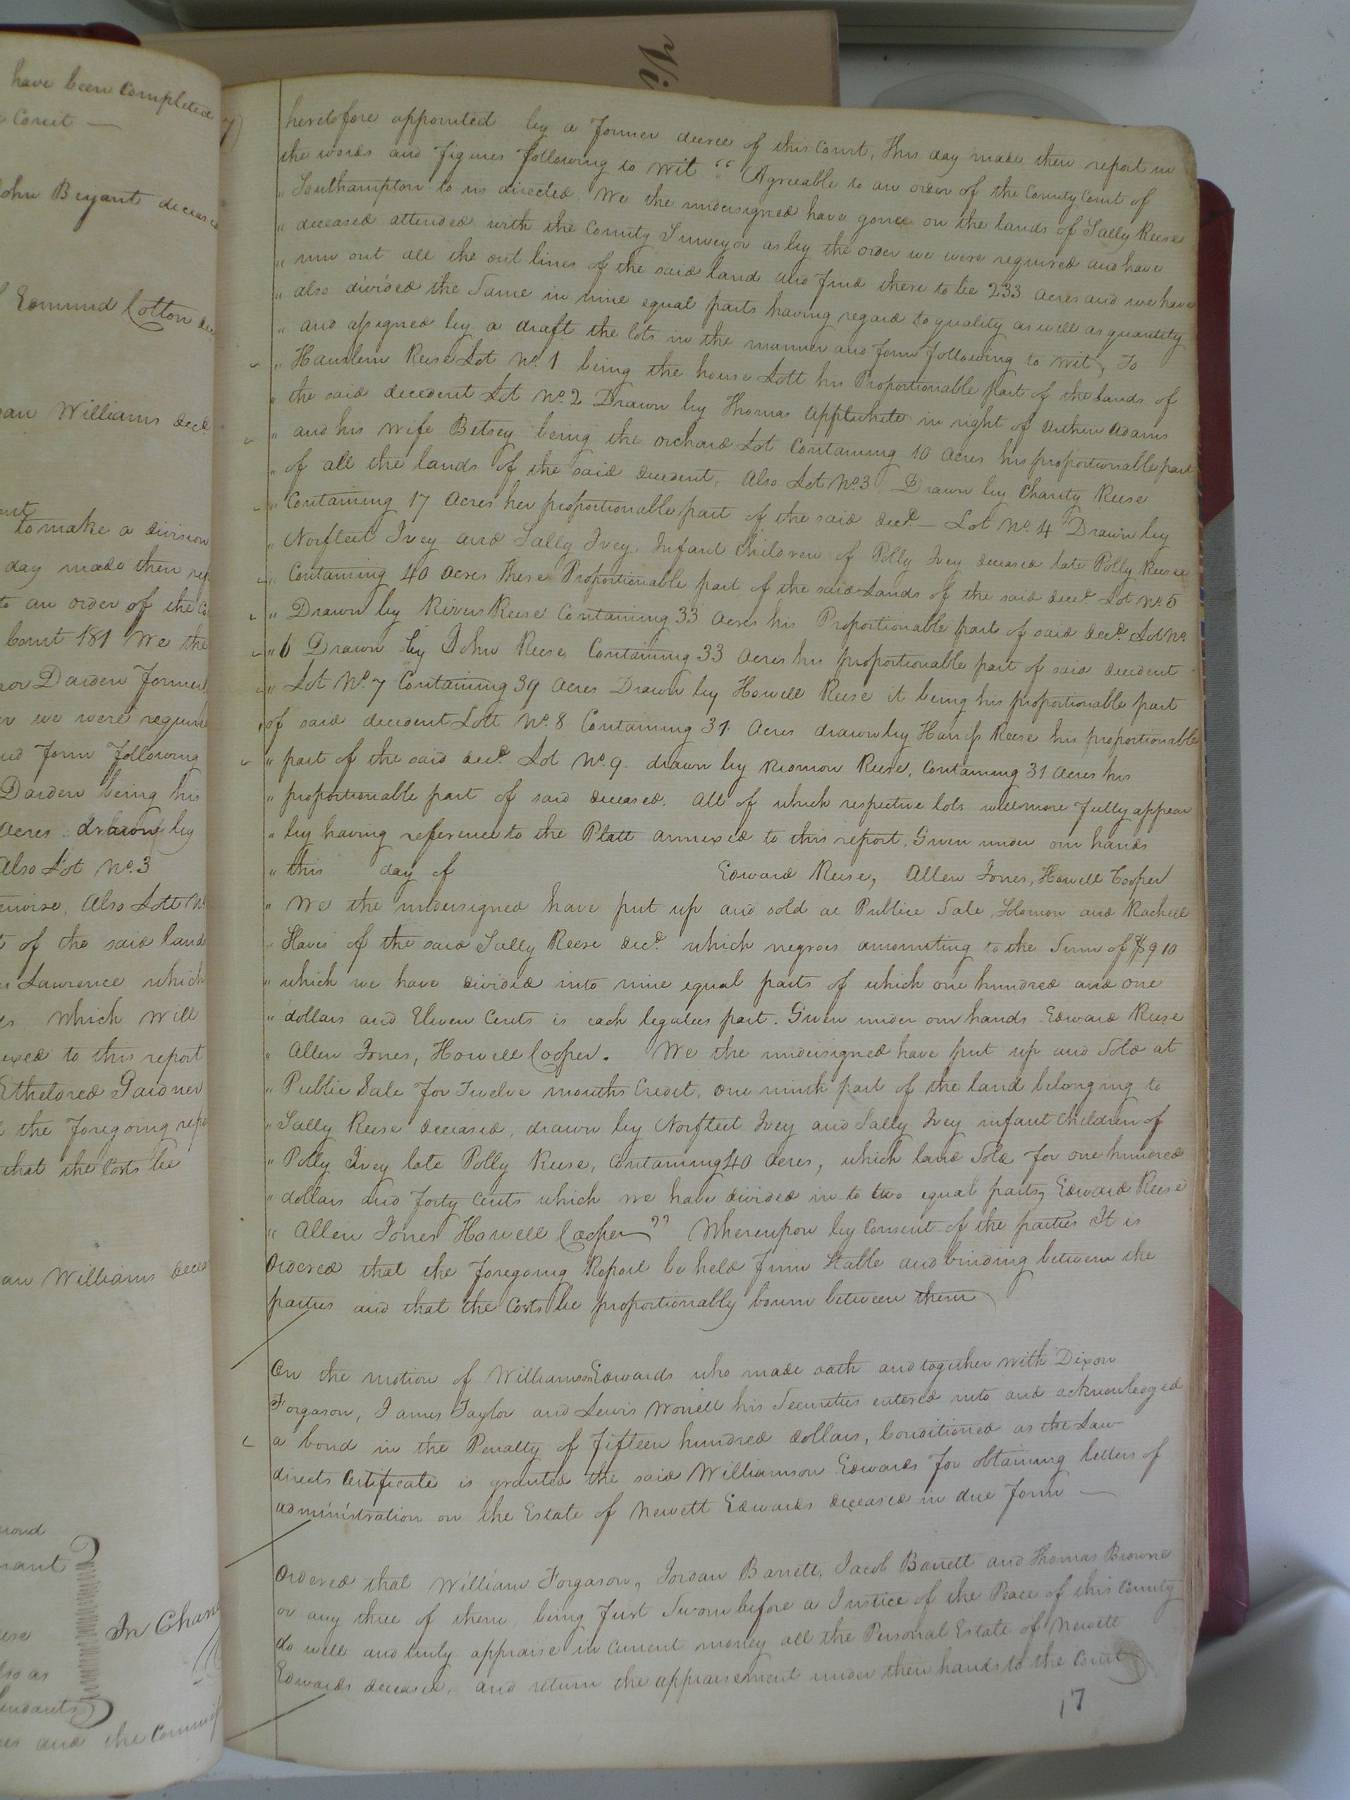 have been Completed
Court —
John Bryant deceased
Edmund Cotton dec
Williams decd
to make a division
day made their rep
to an order of the Co
Court 181 We the
Darden formerl
we were requir
and form following
Darden being his
Acres drawn by
Also Lot No. 3
Also Lott No
of the said land
Lawrence which
which will
annexed to this report
Etheldred Gardner
the foregoing repo
that the Costs be
Williams decea
In Chan
and the Commis
heretofore appointed by a former decree of this Court, this day made their report in
the words and figures following to wit " Agreeable to an order of the County Court of
" Southampton to us directed. We the undersigned have gone on the lands of Sally Reese
" deceased attended with the County Surveyor as by the order we were required and have
" run out all the out lines of the said land and find there to be 233 acres and we have
" also divided the Same in nine equal parts having regard to quality as well as quantity
" and assigned by a draft the lots in the manner and form following to wit, To
" Reese Lot No. 1 being the house Lott his Proportionable part of the lands of
" the said decedent Lot No. 2 Drawn by Thomas Applewhite in right of Adams
" and his wife Betsey being the orchard Lot Containing 10 Acres his proportionable part
" of all the lands of the said decedent, Also Lot No. 3 Drawn by Charity Reese
" Containing 17 Acres her proportionable part of the said decd — Lot No. 4 Drawn by
" Norfleet Ivey and Sally Ivey, Infant Children of Polly Ivey deceased late Polly Reese
" Containing 40 Acres there Proportionable part of the said Lands of the said decd Lot No. 5
" Drawn by Rivers Reese Containing 33 Acres his Proportionable part of said decd. Lot No
" 6 Drawn by John Reese Containing 33 Acres his proportionable part of said decedent
" Lot No. 7 Containing 39 Acres Drawn by Howell Reese it being his proportionable part
of said decedent Lott No. 8 Containing 31 Acres drawn by Reese his proportionable
" part of the said decd Lot No. 9 drawn by Reese, Containing 31 Acres his
" proportionable part of said deceased. All of which respective lots will more fully appear
" by having reference to the Platt annexed to this report, Given under our hands
" this day of Edward Reese, Allen Jones, Howell Cooper
" We the undersigned have put up and sold at Publice Sale, Solomon and Rachell
" Slaves of the said Sally Reese decd. which negroes amounting to the Sum of $910
" which we have divided into nine equal parts of which one hundred and one
" dollars and Eleven Cents is each legatees part. Given under our hands Edward Reese
" Allen Jones, Howell Cooper. We the undersigned have put up and Sold at
" Public Sale for Twelve months Credit, one ninth part of the land belonging to
" Sally Reese deceased, drawn by Norfleet Ivey and Sally Ivey infant Children of
" Polly Ivey late Polly Reese, Containing 40 Acres, which land Sold for one hundred
" dollars and forty Cents which we have divided in to two equal parts, Edward Reese
" Allen Jones Howell Cooper " Whereupon by Consent of the parties It is
Ordered that the foregoing Report be held firm Stable and binding between the
parties and that the Costs be proportionably bourn between them
On the motion of Williamson Edwards who made oath and together with Dixon
Forgason, James Taylor and Lewis Worrell his Securities entered into and acknowledged
a bond in the Penalty of fifteen hundred dollars, Conditioned as the Law
directs Certificate is granted the said Williamson Edwards for obtaining letters of
administration on the Estate of Newett Edwards deceased in due form —
Ordered that William Forgason, Jordan Barrett, Jacob Barrett and Thomas Browne
or any three of them being first Sworn before a Justice of the Peace of this County
do well and truly appraise in Current money all the Personal Estate of Newett
Edwards deceased, and return the appraisement under their hands to the Court
17